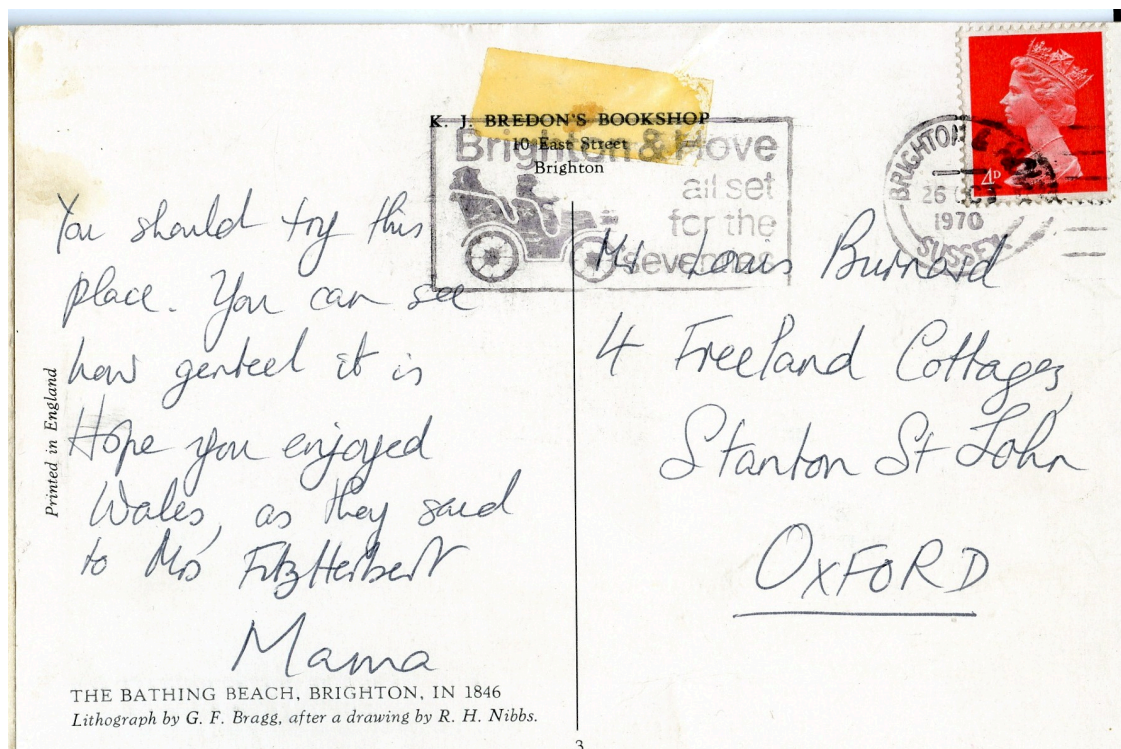 K. J. BREDON'S BOOKSHOP
10 East Street
Brighton
Brighton & Hove
all set
for the
seventies
BRIGHTON
26 OCT
1970
SUSSEX
4D
You should try this
place. You can see
how genteel it is
Hope you enjoyed
Wales, as they said
to Mrs FitzHerbert
Mama
Mr Louis Burnard
4 Freeland Cottages,
Stanton St John
OXFORD
Printed in England
THE BATHING BEACH, BRIGHTON, IN 1846
Lithograph by G. F. Bragg, after a drawing by R. H. Nibbs.
3